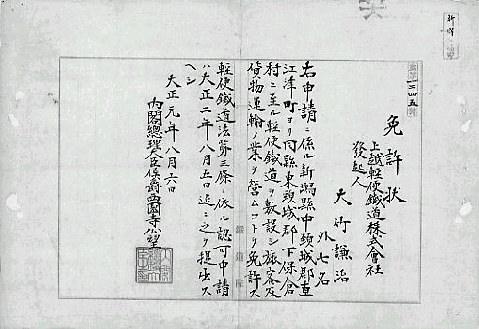 免許状
上越輕便鐵道株式會社
發起人
大竹謙治
外七名
右申請ニ係ル新潟縣中頸城郡直
江津町ヨリ同縣東頸城郡下保倉
村ニ至ル輕便鐵道ヲ敷設シ旅客及
貨物運輸ノ業ヲ營ムコトヲ免許ス
輕便鐵道法第三條ニ依ル認可申請
ハ大正二年八月五日迄ニ之ヲ提出ス
ヘシ
大正元年八月六日
內閣總理大臣侯爵西園寺公望